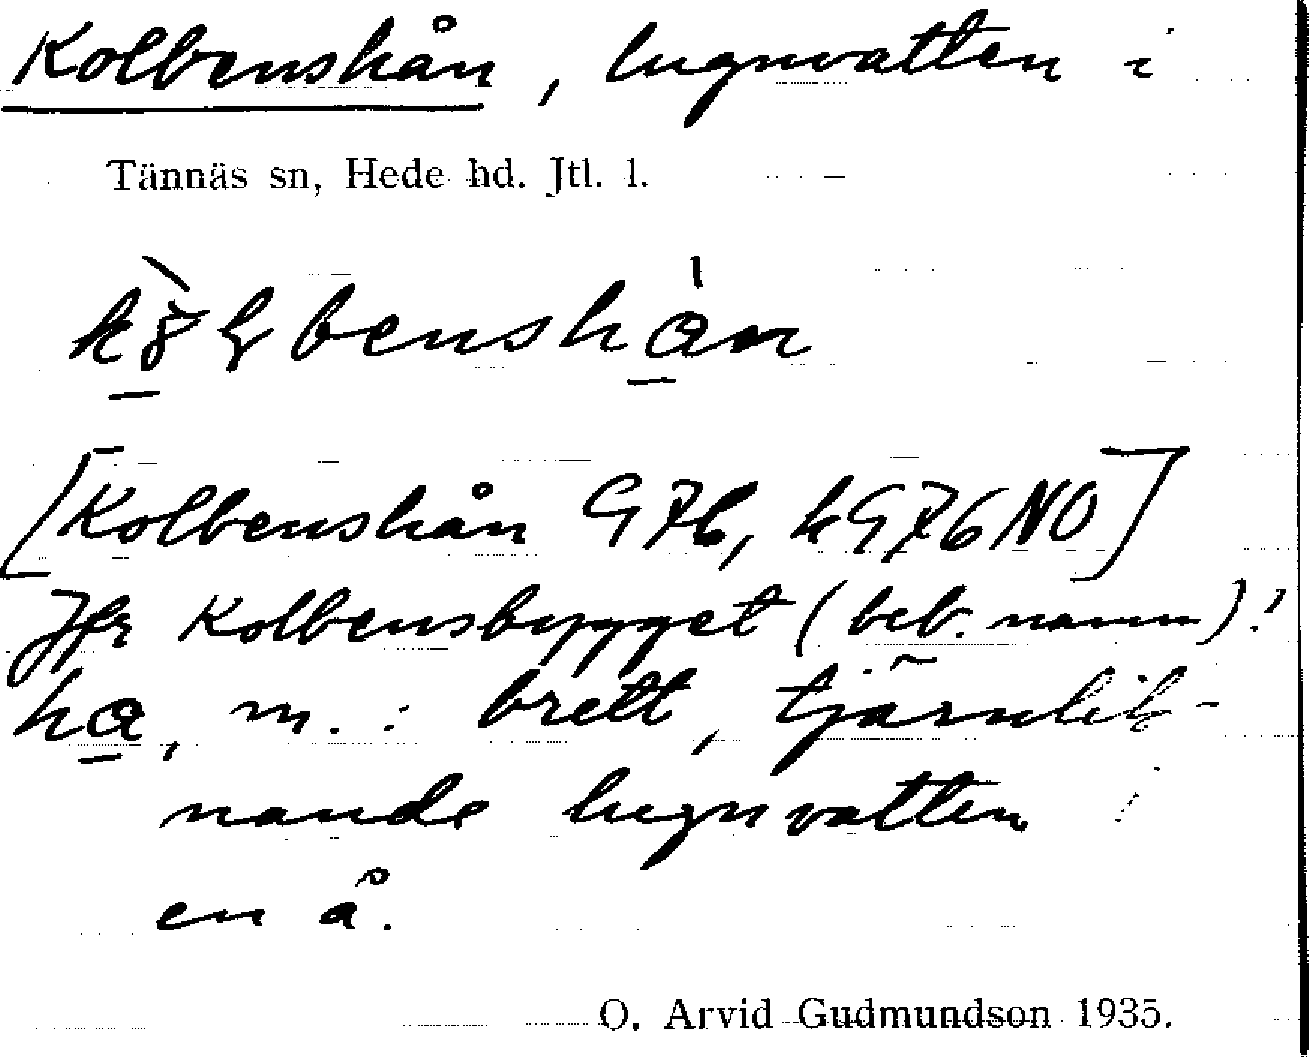 Kolbenshån, lugnvatten i
Tännäs sn, Hede hd. Jtl. l.
[Kolbenshån G76, kG76NO]
Jfr Kolbensbygget (beb. namn)!
ha, m. : brett, tjärnlik-
nande lugnvatten i
en å.
O. Arvid Gudmundson 1935.